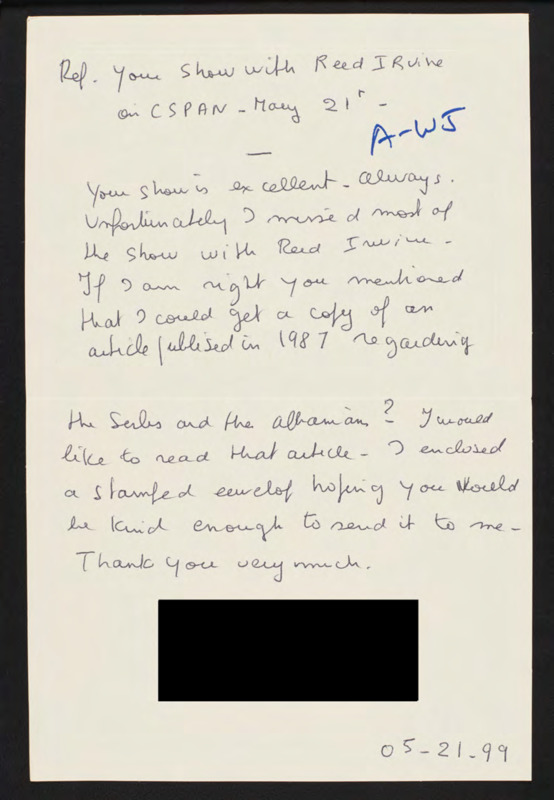 Ref. Your Show with Reed IRvine
on CSPAN - Mary 21r -
A-WJ
Your show is excellent - always.
Unfortunately I missed most of
the show with Reed Irvine -
If I am right you mentioned
that I could get a copy of an
article publised in 1987 regarding
the Serbs and the albanians? I would
like to read that article - I enclosed
a stamped envelop hoping you would
be kind enough to send it to me -
Thank you very much.
05-21-99